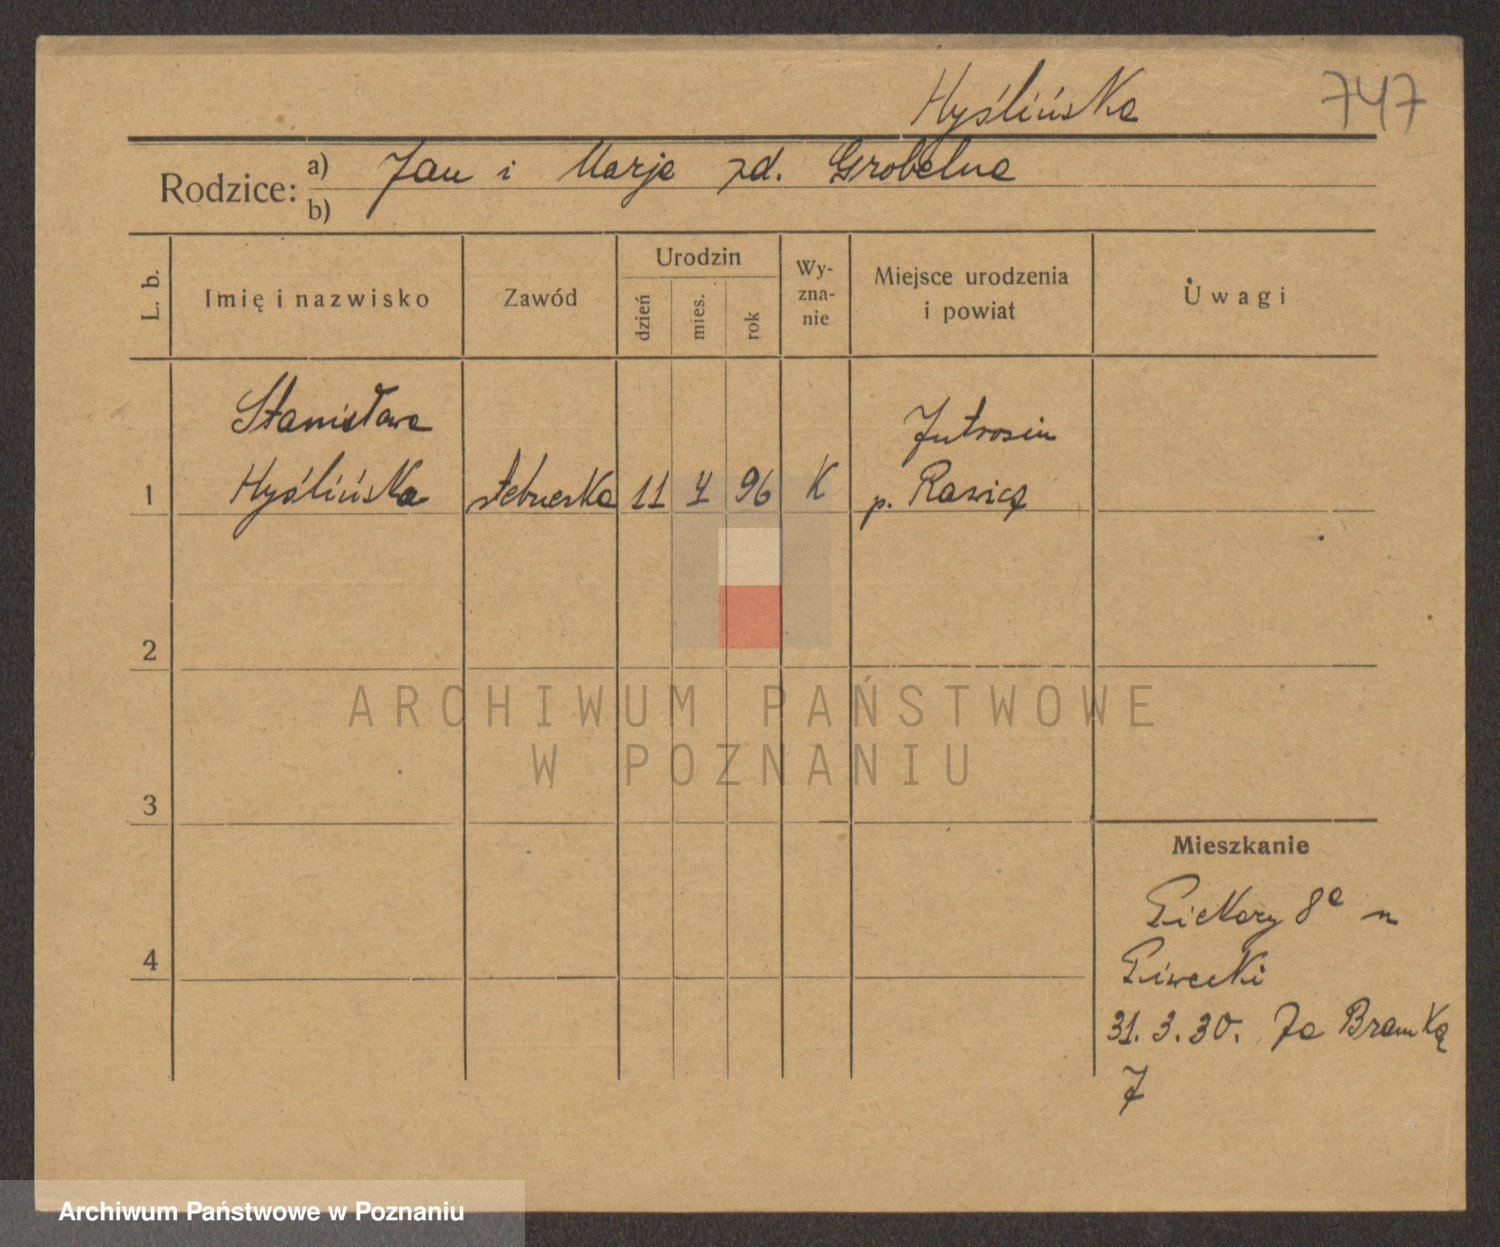 Hyślińska
747
Rodzice:
a) Jan i Marja zd. Grobelna
b)
L. b.
Imię i nazwisko
Zawód
Urodzin
dzień
mies.
rok
Wy-
zna-
nie
Miejsce urodzenia
i powiat
Uwagi
Stanisława
Jutrosin
1 Hyślińska 11 4 96 K p. Rawicz
2
3
4
Mieszkanie
Piekary 8a
Piwecki
31. 3. 30. Za Bramką
7
ARCHIWUM PAŃSTWOWE
W POZNANIU
Archiwum Państwowe w Poznaniu